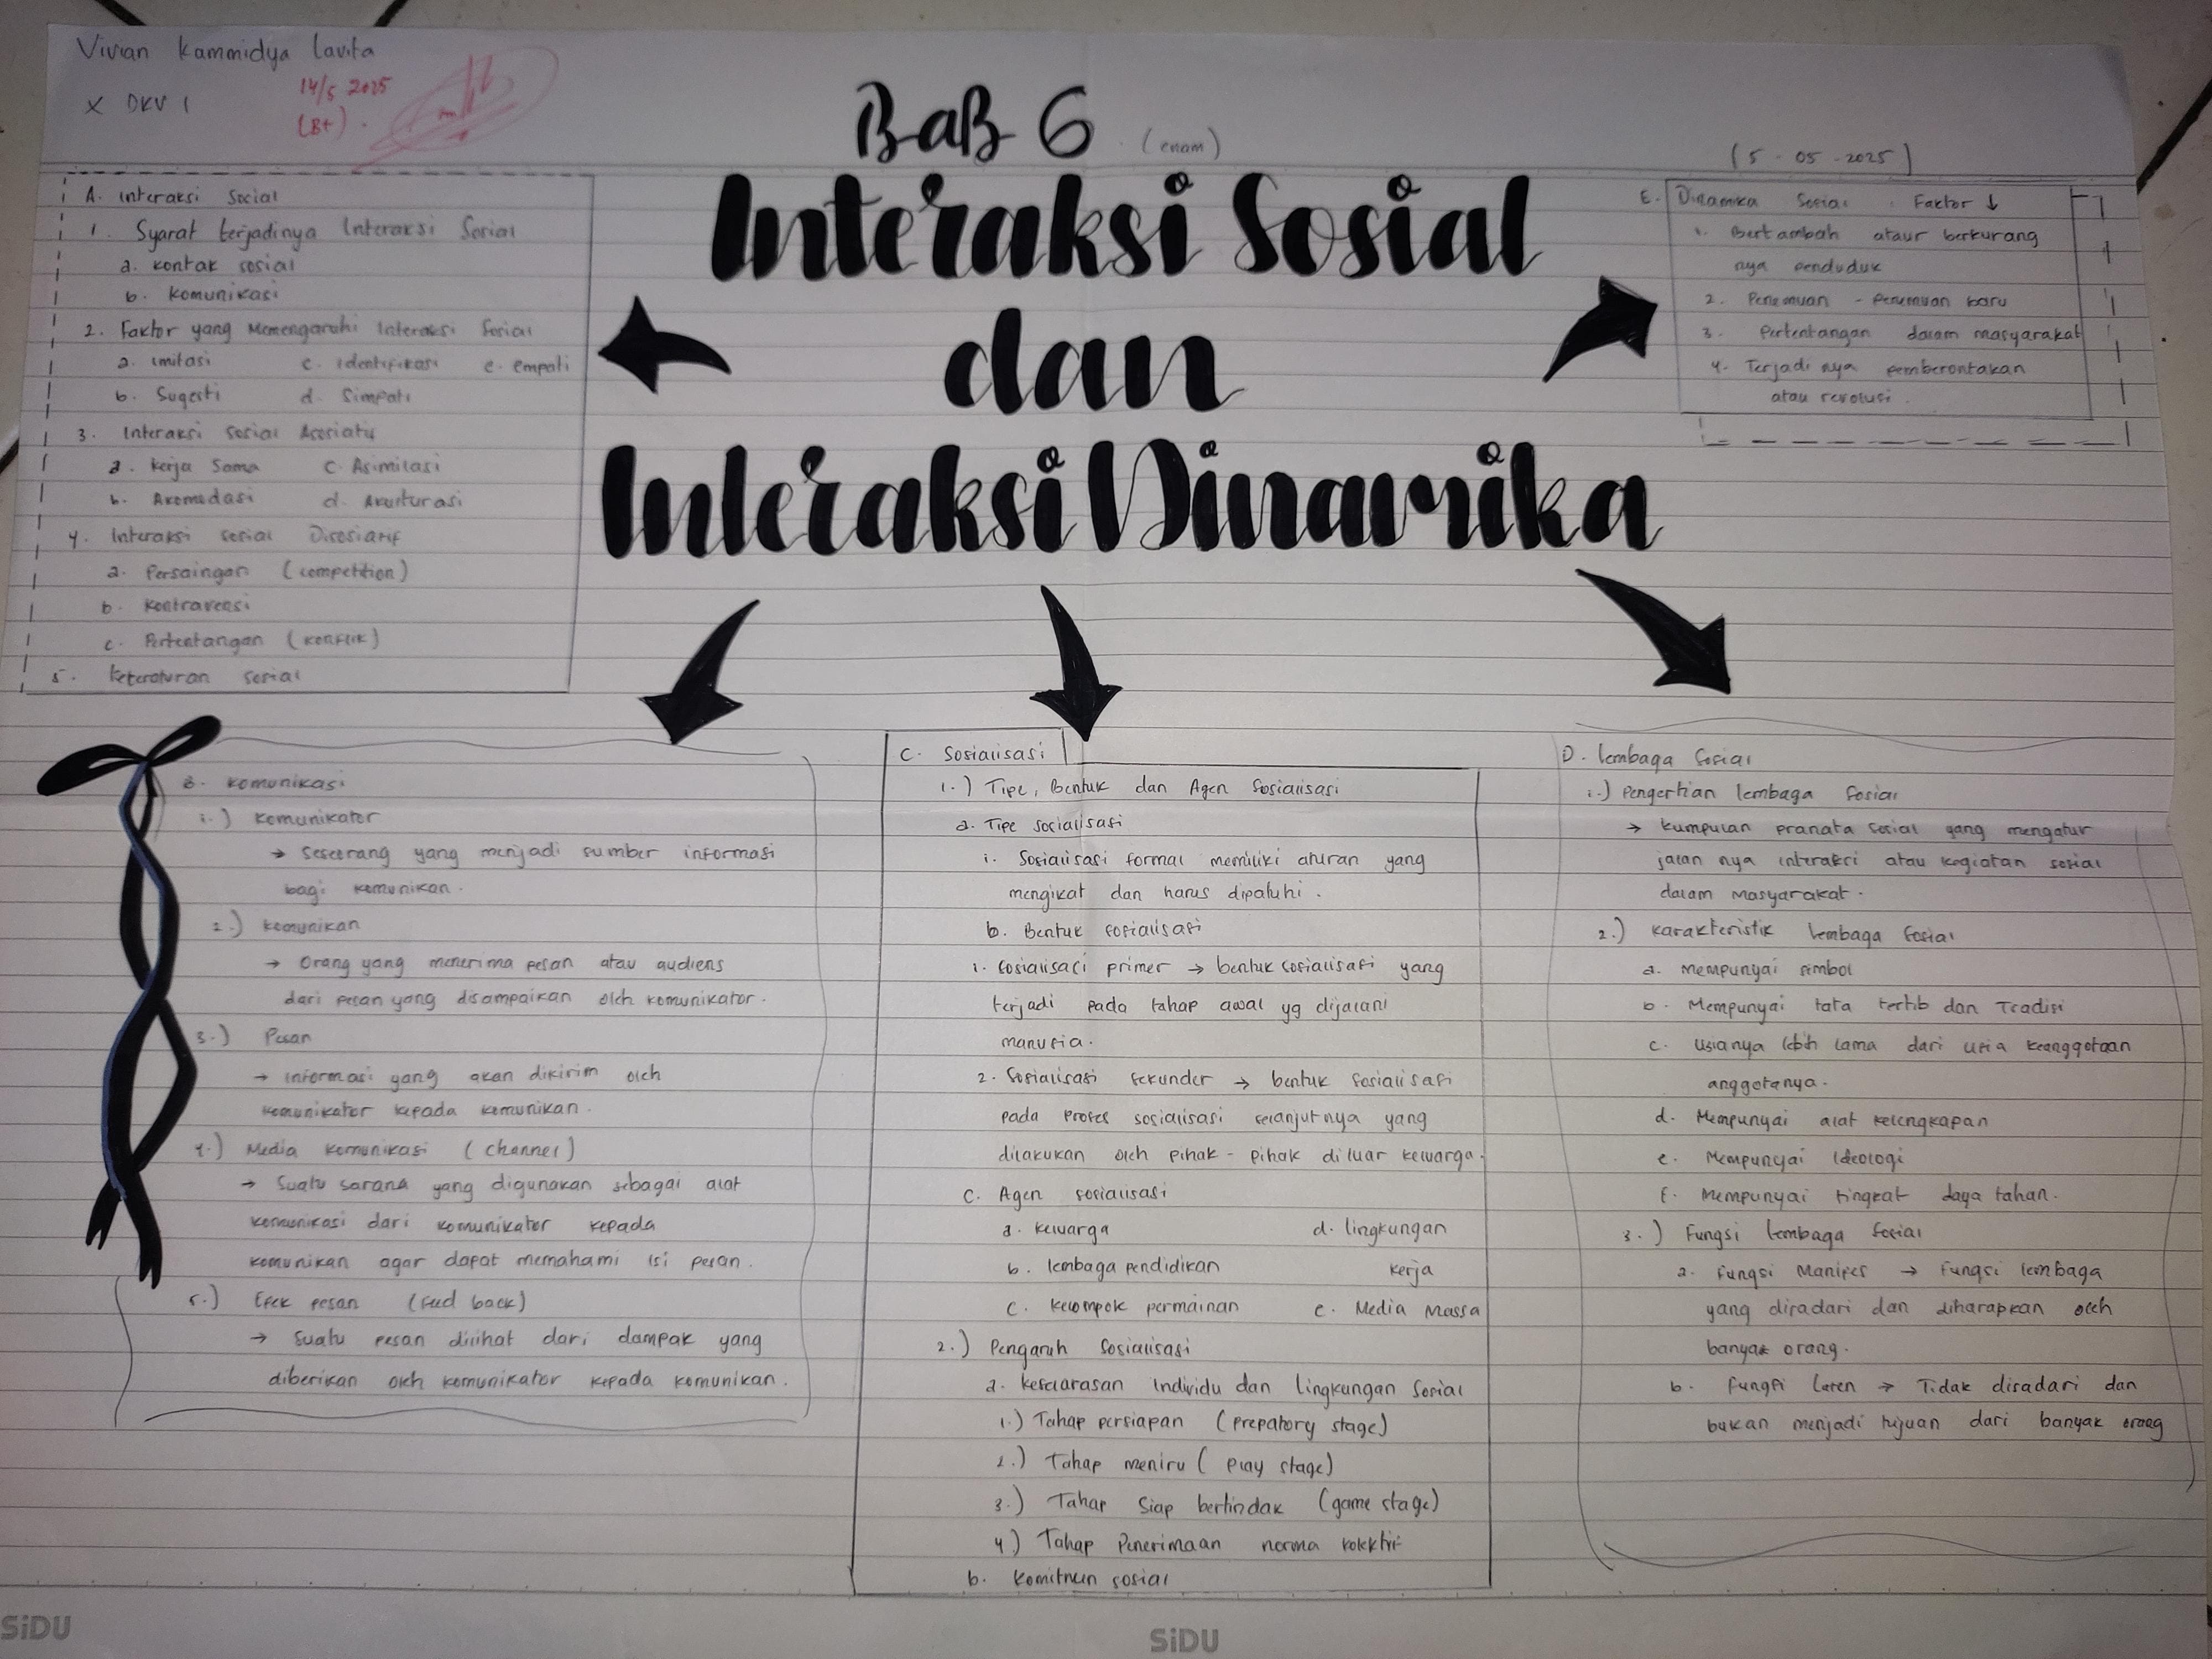 Vivian Kammidya Lavita
X DKV 1
14/5 2025
(B+).
BaB 6 (enam)
(5 - 05 - 2025)
Interaksi Sosial
dan
Interaksi Dinamika
A. Interaksi Social
1. Syarat terjadinya Interaksi Sosial
a. kontak sosial
b. komunikasi
2. Faktor yang Memengaruhi Interaksi Sosial
a. imitasi c. identifikasi e. empati
b. Sugesti d. Simpati
3. Interaksi sosial Asosiatif
a. kerja Sama c. Asimilasi
b. Akomodasi d. Akulturasi
4. Interaksi sosial Disosiatif
a. Persaingan (competition)
b. kontravensi
c. Pertentangan (konflik)
5. keteraturan sosial
E. Dinamika Sosial : Faktor ↓
1. Bertambah ataur berkurang
nya penduduk
2. Penemuan - penemuan baru
3. Pertentangan dalam masyarakat
4. Terjadi nya pemberontakan
atau revolusi.
B. komunikasi
1.) komunikator
→ Seseorang yang menjadi sumber informasi
bagi komunikan.
2.) komunikan
→ Orang yang menerima pesan atau audiens
dari pesan yang disampaikan oleh komunikator.
3.) Pesan
→ informasi yang akan dikirim oleh
komunikator kepada komunikan.
4.) Media komunikasi (channel)
→ Suatu sarana yang digunakan sebagai alat
komunikasi dari komunikator kepada
komunikan agar dapat memahami isi pesan.
5.) Efek pesan (feed back)
→ Suatu pesan dilihat dari dampak yang
diberikan oleh komunikator kepada komunikan.
C. Sosialisasi
1.) Tipe, Bentuk dan Agen Sosialisasi
a. Tipe sosialisasi
i. Sosialisasi formal memiliki aturan yang
mengikat dan harus dipatuhi.
b. Bentuk sosialisasi
1. sosialisasi primer → bentuk sosialisasi yang
terjadi pada tahap awal yg dijalani
manusia.
2. Sosialisasi sekunder → bentuk sosialisasi
pada proses sosialisasi selanjutnya yang
dilakukan oleh pihak - pihak diluar keluarga.
C. Agen sosialisasi
a. keluarga d. lingkungan
b. lembaga pendidikan kerja
c. kelompok permainan e. Media Massa
2.) Pengaruh Sosialisasi
a. keselarasan individu dan lingkungan Sosial
1.) Tahap persiapan (prepatory stage)
2.) Tahap meniru (play stage)
3.) Tahap Siap bertindak (game stage)
4.) Tahap Penerimaan norma kolektif
b. komitmen sosial
D. lembaga Sosial
1.) Pengertian lembaga Sosial
→ kumpulan pranata sosial yang mengatur
jalan nya interaksi atau kegiatan sosial
dalam masyarakat.
2.) karakteristik lembaga Sosial
a. mempunyai simbol
b. Mempunyai tata tertib dan Tradisi
c. usianya lebih lama dari usia keanggotaan
anggotanya.
d. Mempunyai alat kelengkapan
e. Mempunyai ideologi
f. Mempunyai tingkat daya tahan.
3.) Fungsi lembaga Sosial
a. Fungsi Manifes → Fungsi lembaga
yang disadari dan diharapkan oleh
banyak orang.
b. Fungsi Laten → Tidak disadari dan
bukan menjadi tujuan dari banyak orang
SiDU
SiDU